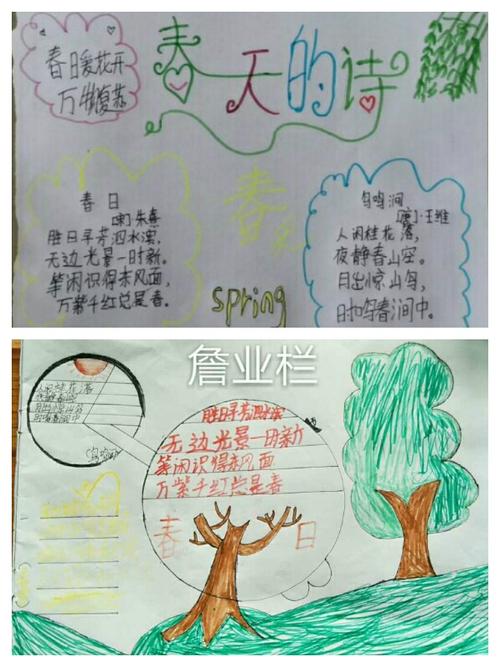 春日暖花开
万物复苏
春天的诗
春日
[宋]朱熹
胜日寻芳泗水滨,
无边光景一时新。
等闲识得东风面,
万紫千红总是春。
春天
spring
鸟鸣涧
[唐]·王维
人闲桂花落,
夜静春山空。
月出惊山鸟,
时鸣春涧中。
詹业栏
人闲桂花落
夜静春山空
月出惊山鸟
时鸣春涧中
鸟鸣涧
胜日寻芳泗水滨
无边光景一时新
等闲识得东风面
万紫千红总是春
春日